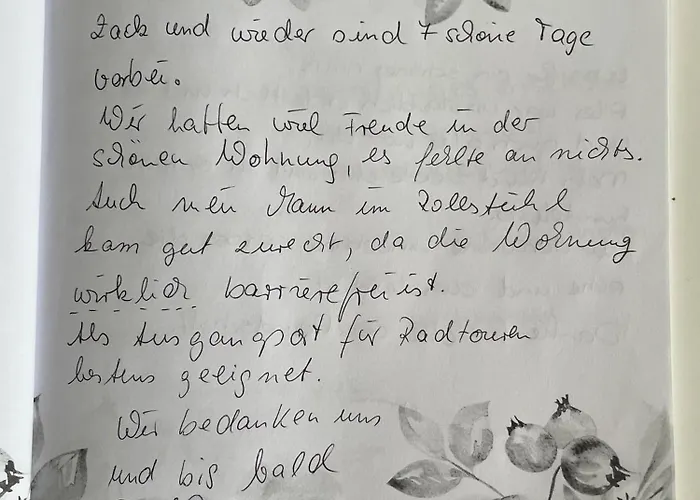 Zack und wieder sind 7 schöne Tage
vorbei.
Wir hatten viel Freude in der
schönen Wohnung, es fehlte an nichts.
Auch mein Mann im Rollstuhl
kam gut zurecht, da die Wohnung
wirklich barrierefrei ist.
Als Ausgangsort für Radtouren
bestens geeignet.
Wir bedanken uns
und bis bald